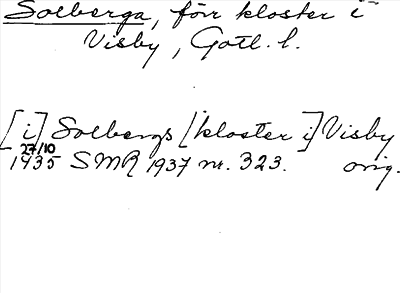 Solberga, förr kloster i
Visby, Gotl. l.
[i] Solbergs [kloster i] Visby
27/10
1935 SMR 1937 nr. 323. orig.